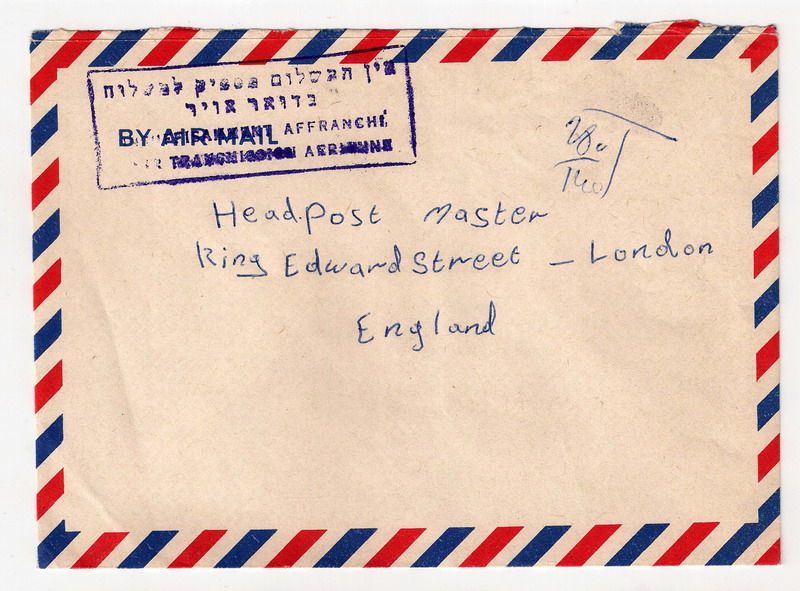 אין התשלום מספיק למשלוח
בדואר אויר
BY AIR MAIL
AFFRANCHI,
TRANSMISSION AERIENNE
T
280
140
Head.Post Master
King Edward Street – London
England